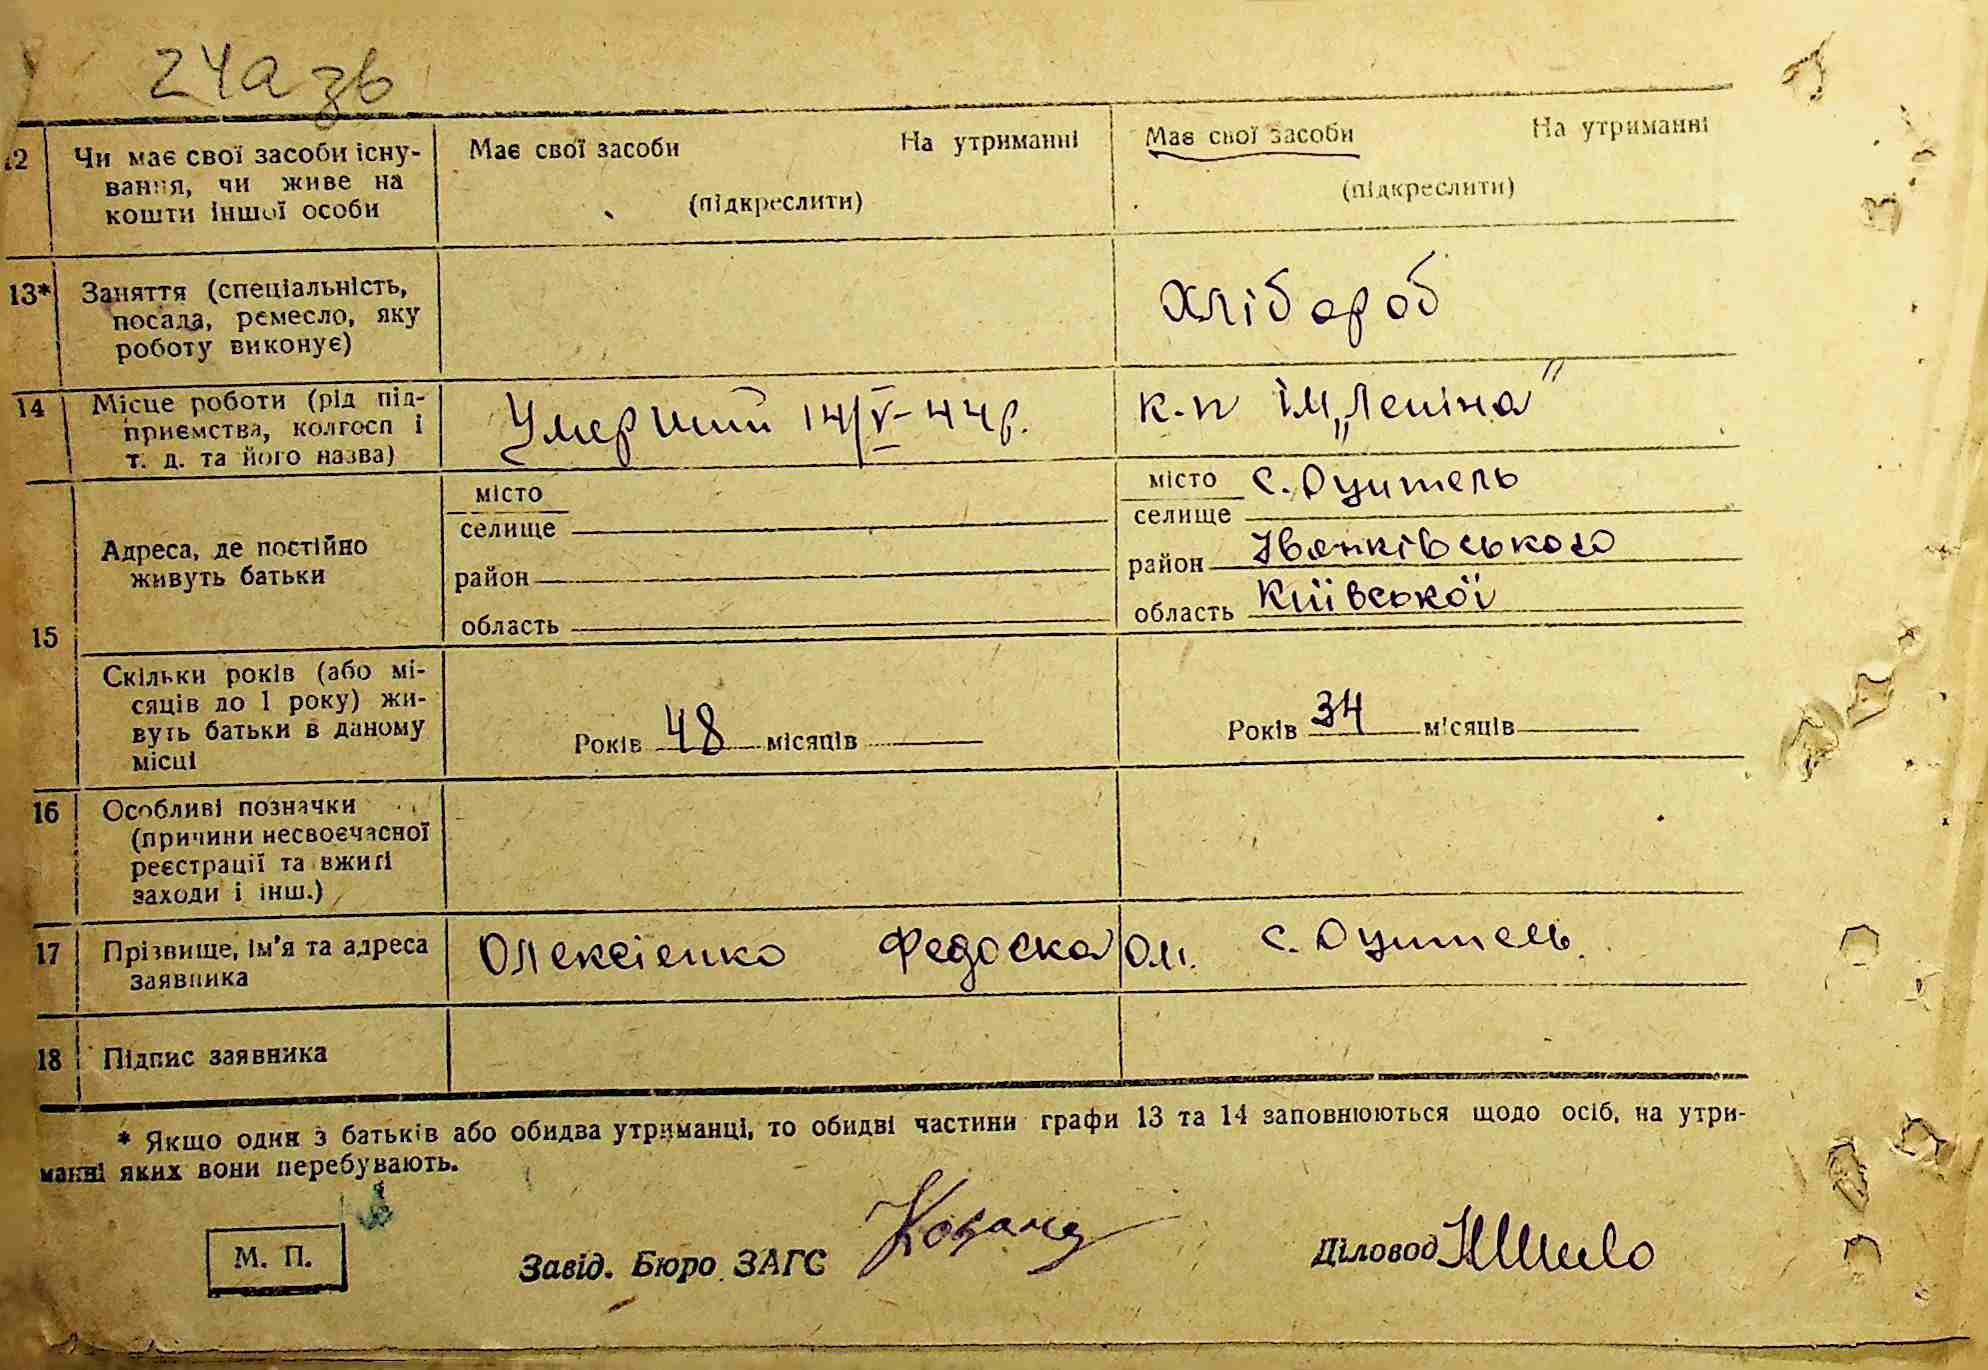 24а зв
12 Чи має свої засоби існу-
вання, чи живе на
кошти іншої особи
Має свої засоби На утриманні
(підкреслити)
Має свої засоби На утриманні
(підкреслити)
13* Заняття (спеціальність,
посада, ремесло, яку
роботу виконує)
Хлібороб
14 Місце роботи (рід під-
приємства, колгосп і
т. д. та його назва)
Умерший 14/V-44р.
к-п ім „Леніна"
15
Адреса, де постійно
живуть батьки
місто
селище
район
область
місто с. Оцитель
селище
район Іванківського
область Київської
Скільки років (або мі-
сяців до 1 року) жи-
вуть батьки в даному
місці
Років 48 місяців
Років 34 місяців
16 Особливі позначки
(причини несвоєчасної
реєстрації та вжиті
заходи і інш.)
17 Прізвище, ім'я та адреса
заявника
Олексієнко Федоска Ол. с. Оцитель.
18 Підпис заявника
* Якщо один з батьків або обидва утриманці, то обидві частини графи 13 та 14 заповнюються щодо осіб, на утри-
манні яких вони перебувають.
М. П.
Завід. Бюро ЗАГС
Діловод НШило